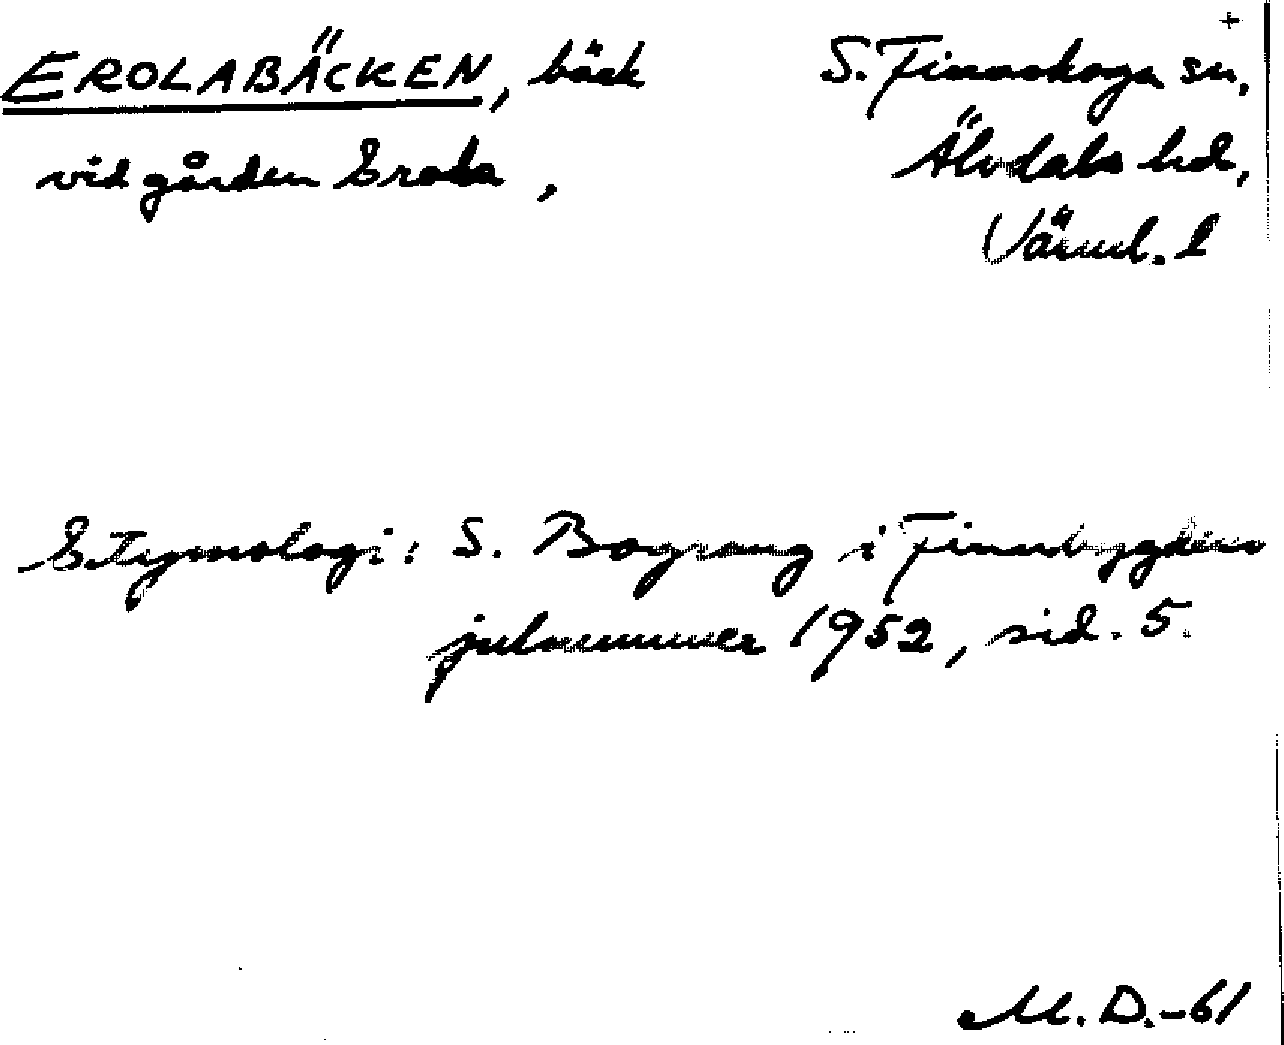 EROLABÄCKEN, bäck
vid gården Erola,
S. Finnskoga sn, +
Älvdals hd,
Värml. l
Etymologi: S. Bograng i Finnbygdens
julnummer 1952, sid. 5.
M. D.-61